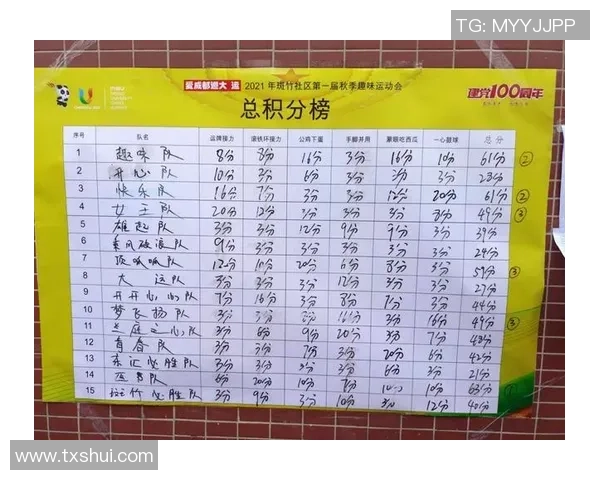 TG: MYYJJPP
爱成都迎大运 2021年斑竹社区第一届秋季趣味运动会 建党100周年
总积分榜
序号 队名 品牌接力 滚铁环接力 公鸡下蛋 手脚并用 蒙眼吃西瓜 一心翘球 总分
1 趣味队 8分 8分 16分 3分 16分 10分 61分 ②
2 开心队 10分 3分 6分 3分 3分 28分
3 快乐队 16分 7分 3分 3分 12分 20分 61分 ②
4 女王队 20分 12分 3分 3分 3分 8分 49分 ③
5 雄起队 3分 3分 12分 9分 9分 3分 39分
6 乘风破浪队 9分 3分 3分 3分 3分 3分 24分
7 顶呱呱队 12分 10分 20分 6分 8分 3分 59分 ③
8 大运队 3分 3分 3分 12分 3分 3分 27分
9 开开心心队 7分 16分 3分 8分 7分 3分 44分
10 梦飞扬队 3分 3分 8分 16分 3分 16分 49分
11 兰庭之心队 3分 6分 9分 20分 3分 7分 48分
12 青春队 3分 3分 7分 3分 20分 6分 42分
13 东汇必胜队 3分 3分 3分 3分 6分 3分 21分
14 6分 20分 10分 7分 10分 10分 63分
15 斑竹必胜队 3分 9分 3分 10分 3分 12分 40分
www.txshui.com